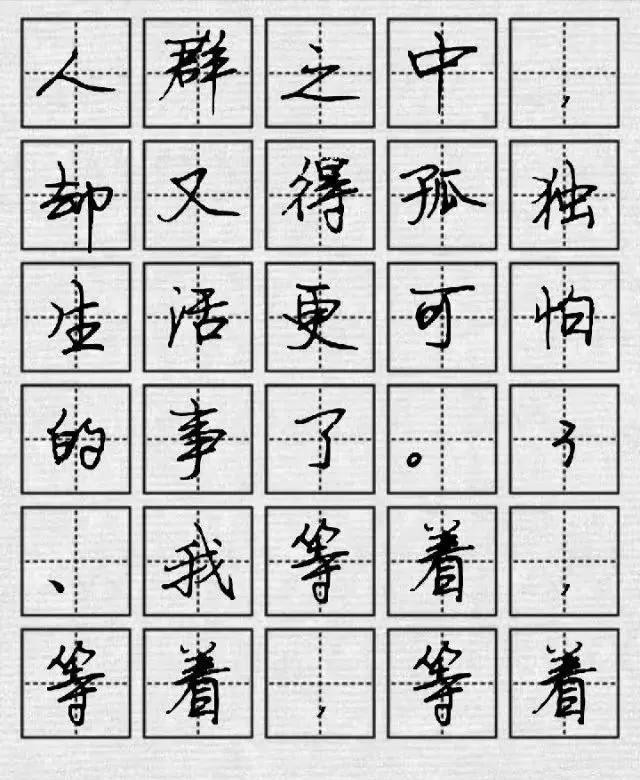 人群之中，
却又得孤独
生活更可怕
的事了。3
、我等着，
等着，等着